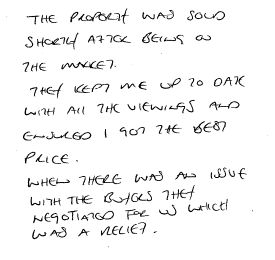 THE PROPERTY WAS SOLD
SHORTLY AFTER BEING ON
THE MARKET.
THEY KEPT ME UP TO DATE
WITH ALL THE VIEWINGS AND
ENSURED I GOT THE BEST
PRICE.
WHEN THERE WAS AN ISSUE
WITH THE BUYERS THEY
NEGOTIATED FOR US WHICH
WAS A RELIEF.